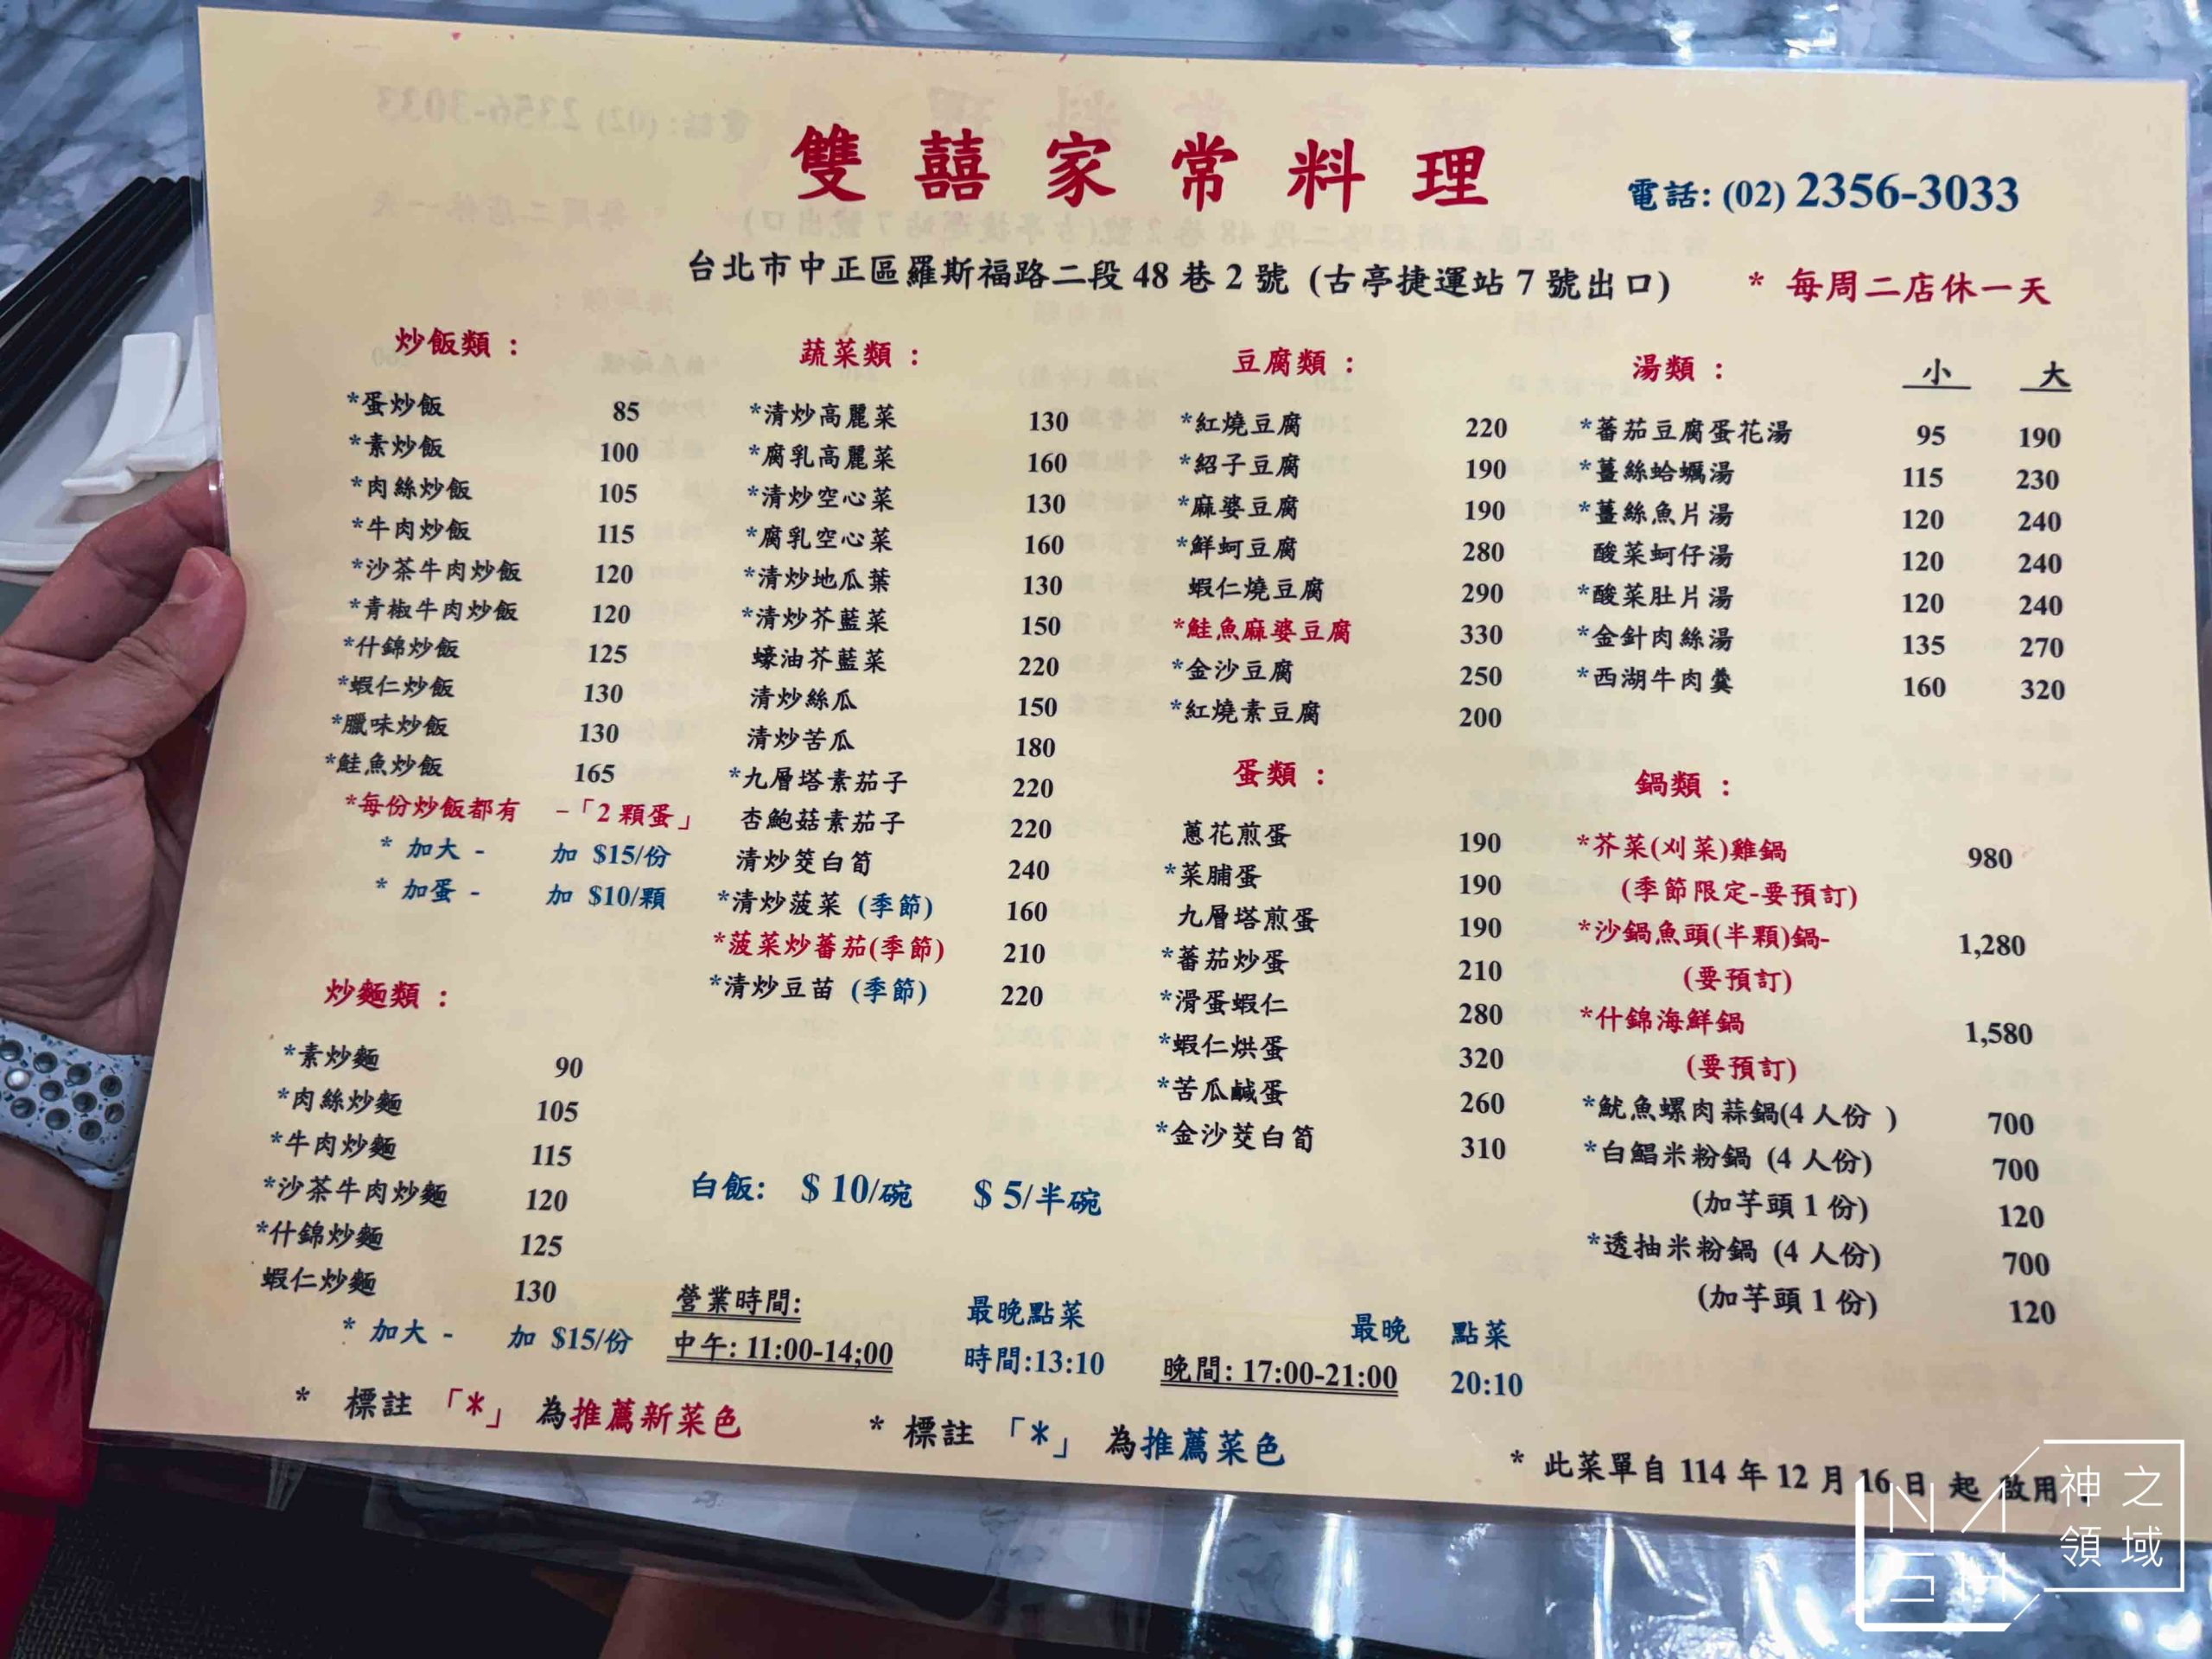 雙囍家常料理
電話: (02) 2356-3033
台北市中正區羅斯福路二段 48 巷 2 號 (古亭捷運站 7 號出口)
* 每周二店休一天
炒飯類：
*蛋炒飯 85
*素炒飯 100
*肉絲炒飯 105
*牛肉炒飯 115
*沙茶牛肉炒飯 120
*青椒牛肉炒飯 120
*什錦炒飯 125
*蝦仁炒飯 130
*臘味炒飯 130
*鮭魚炒飯 165
*每份炒飯都有 –「2 顆蛋」
* 加大 - 加 $15/份
* 加蛋 - 加 $10/顆
炒麵類：
*素炒麵 90
*肉絲炒麵 105
*牛肉炒麵 115
*沙茶牛肉炒麵 120
*什錦炒麵 125
蝦仁炒麵 130
* 加大 - 加 $15/份
蔬菜類：
*清炒高麗菜 130
*腐乳高麗菜 160
*清炒空心菜 130
*腐乳空心菜 160
*清炒地瓜葉 130
*清炒芥藍菜 150
蠔油芥藍菜 220
清炒絲瓜 150
清炒苦瓜 180
*九層塔素茄子 220
杏鮑菇素茄子 220
清炒筊白筍 240
*清炒菠菜 (季節) 160
*菠菜炒蕃茄(季節) 210
*清炒豆苗 (季節) 220
白飯: $ 10/碗 $ 5/半碗
豆腐類：
*紅燒豆腐 220
*紹子豆腐 190
*麻婆豆腐 190
*鮮蚵豆腐 280
蝦仁燒豆腐 290
*鮭魚麻婆豆腐 330
*金沙豆腐 250
*紅燒素豆腐 200
蛋類：
蔥花煎蛋 190
*菜脯蛋 190
九層塔煎蛋 190
*蕃茄炒蛋 210
*滑蛋蝦仁 280
*蝦仁烘蛋 320
*苦瓜鹹蛋 260
*金沙茭白筍 310
湯類： 小 大
*蕃茄豆腐蛋花湯 95 190
*薑絲蛤蠣湯 115 230
*薑絲魚片湯 120 240
酸菜蚵仔湯 120 240
*酸菜肚片湯 120 240
*金針肉絲湯 135 270
*西湖牛肉羹 160 320
鍋類：
*芥菜(刈菜)雞鍋 980
(季節限定-要預訂)
*沙鍋魚頭(半顆)鍋- 1,280
(要預訂)
*什錦海鮮鍋 1,580
(要預訂)
*魷魚螺肉蒜鍋(4 人份 ) 700
*白鯧米粉鍋 (4 人份) 700
(加芋頭 1 份) 120
*透抽米粉鍋 (4 人份) 700
(加芋頭 1 份) 120
營業時間:
中午: 11:00-14;00
最晚點菜
時間:13:10
晚間: 17:00-21:00
最晚 點菜
20:10
* 標註 「*」 為推薦新菜色
* 標註 「*」 為推薦菜色
* 此菜單自 114 年 12 月 16 日 起 啟用
神之
領域